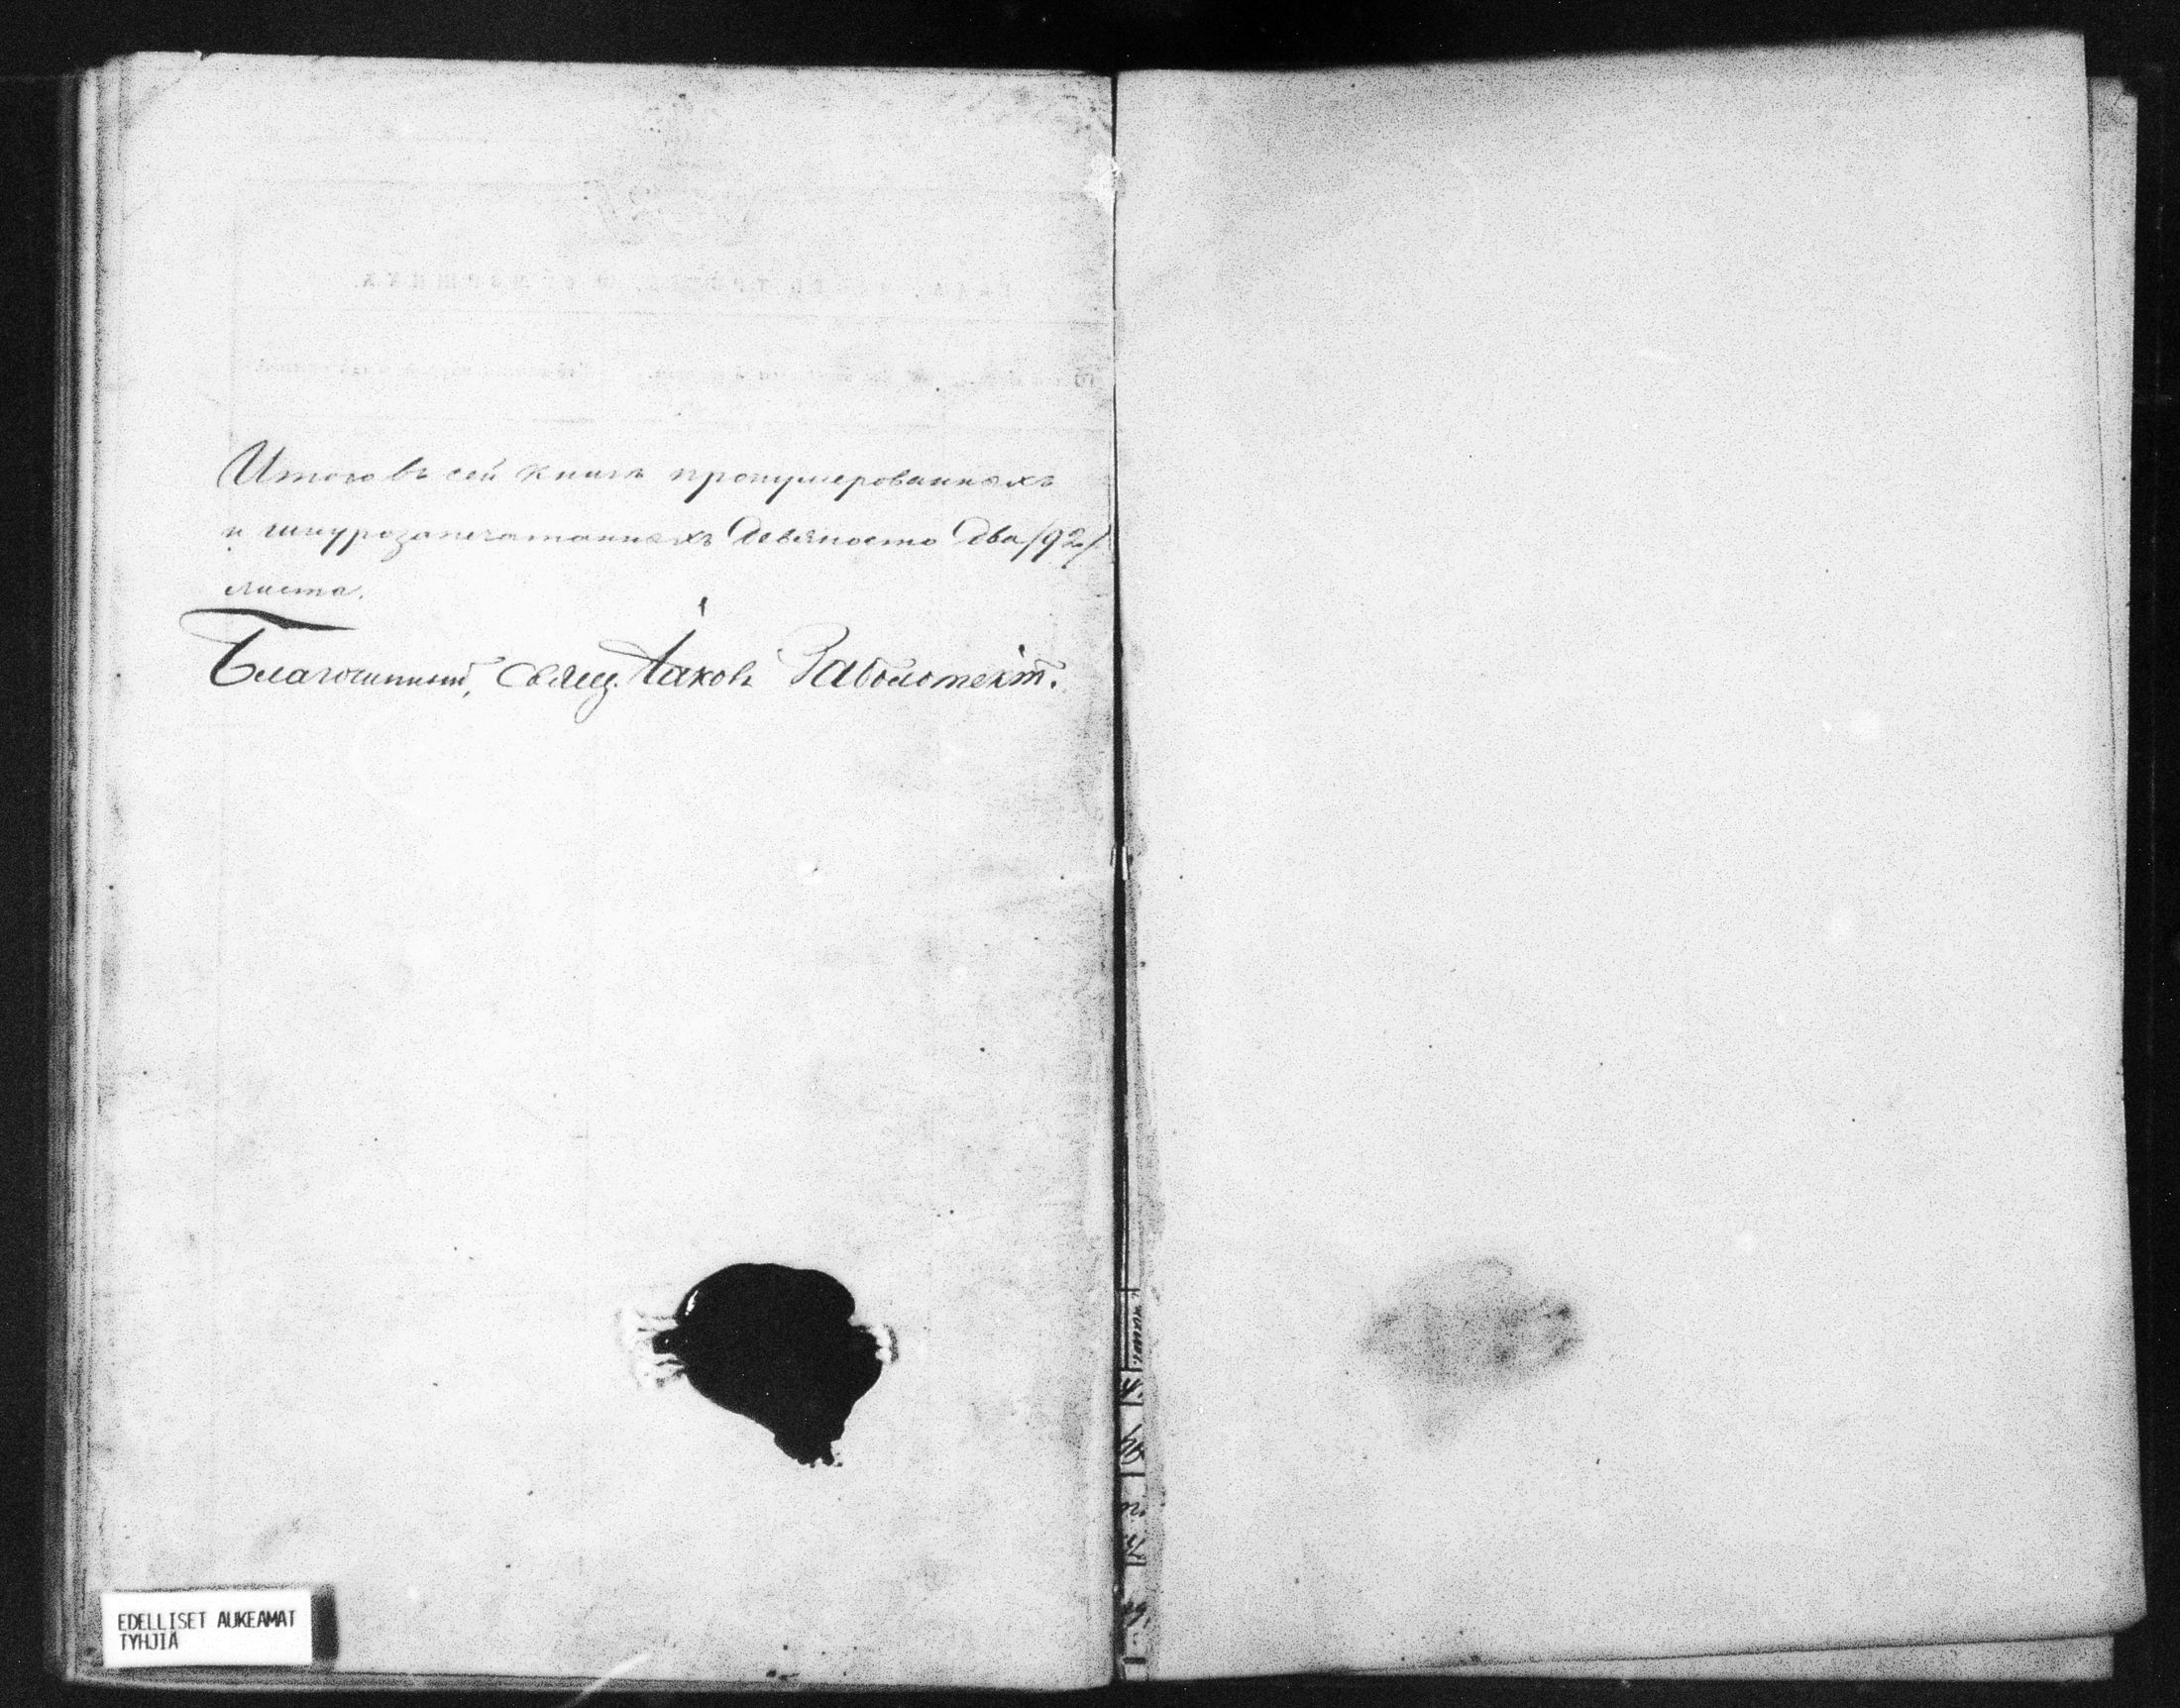 Итого въ сей книгѣ пронумерованныхъ
и шнурозапечатанныхъ девяносто два /92/
листа.
Благочинный, свящ. Іаковъ Заболотскій.
EDELLISET AUKEAMAT
TYHJIÄ